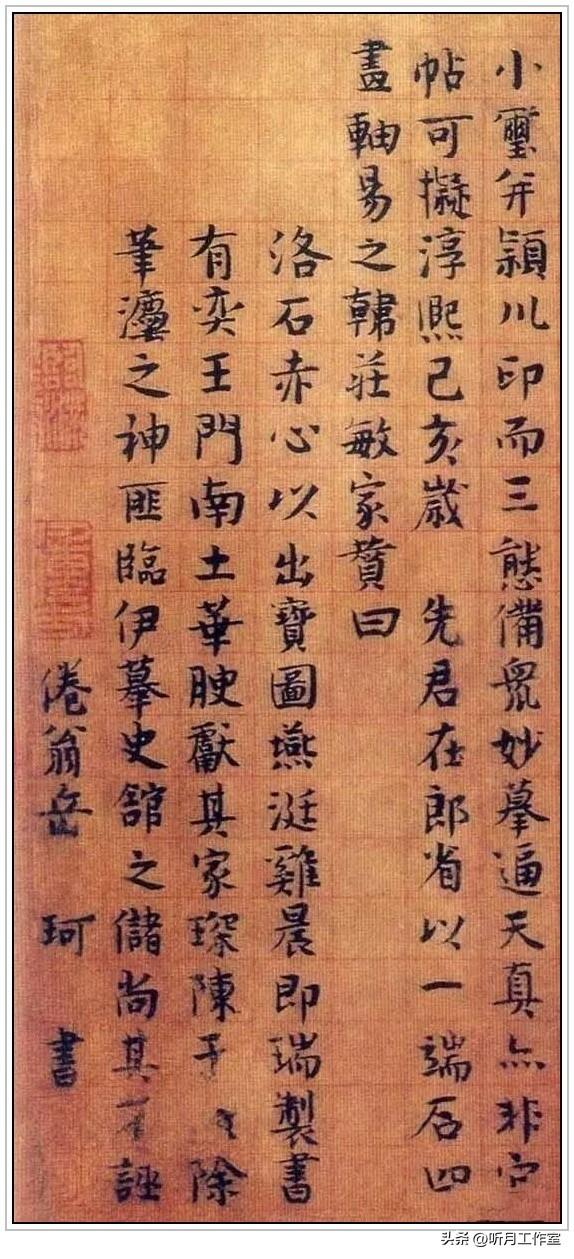 小璽并潁川印而三態備眾妙摹逼天真亦非它
帖可擬淳熙己亥歲 先君在郎省以一端石四
畫軸易之韓莊敏家贊曰
洛石赤心以出寶圖燕涎雞晨即瑞製書
有奕王門南土華腴獻其家琛陳于 除
筆瀍之神匪臨伊摹史館之儲尚其 誣
倦翁岳 珂 書
头条 @听月工作室